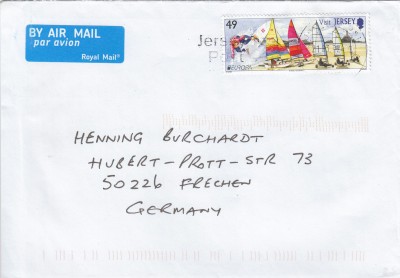 BY AIR MAIL
par avion
Royal Mail
49
Visit JERSEY
EUROPA
Jers
HENNING BURCHARDT
HUBERT-PROTT-STR 73
50226 FRECHEN
GERMANY